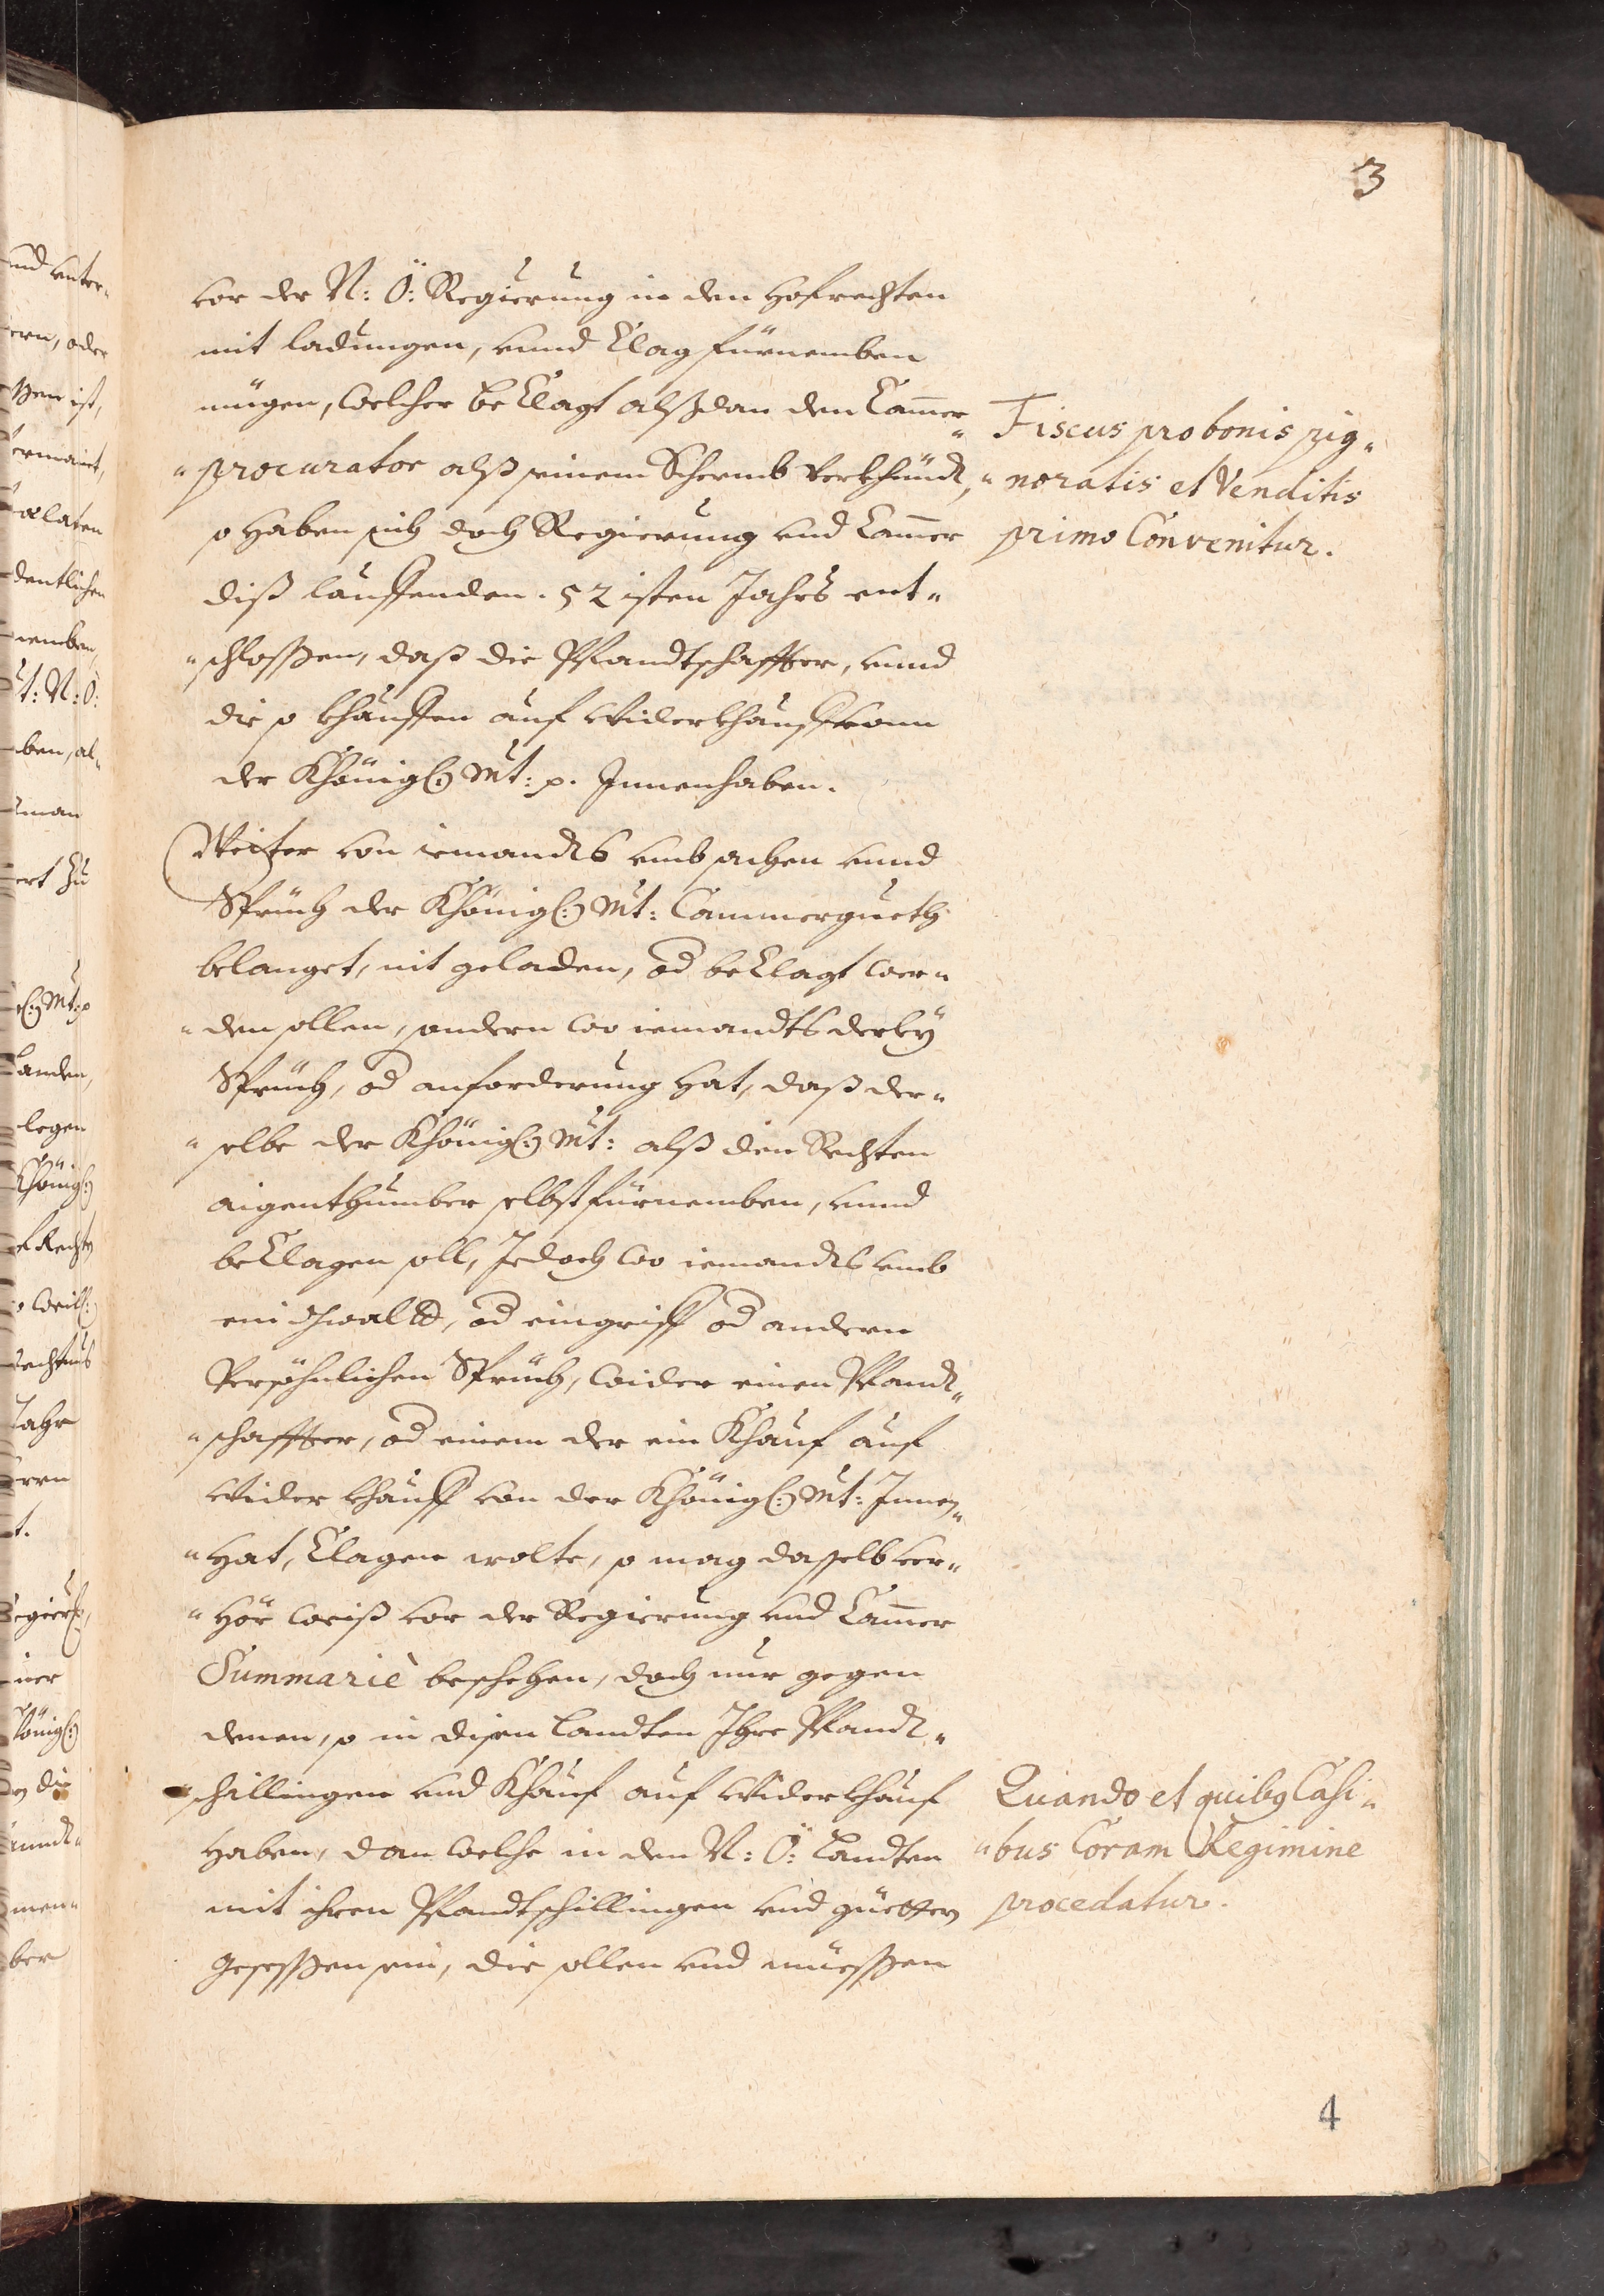 3
vor der N: Ö: Regierung in den Hofrechten
mit ladungen, vnnd Clag fürnemben
mügen, welcher beClagt alßdan den Cam̄er„
„procurator alß seinem Schermb verkhündt,
so haben sich doch Regierung vnd Cam̄er
diß lauffenden . 52 isten Jahrs ent„
„schloßen, daß die Pfandtschaffter, vnnd
die so khauffen auf widerkhauff vonn
der Khönigl: Mt: p. Innenhaben.
Weiter von iemandts vmb sachen vnnd
Sprüch der Khönigl: Mt: Cammergueth
belanget, nit geladen, od beClagt wer„
„den sollen, sondern wo iemandts derley
Sprüch, od anforderung hat, daß der„
„selbe der Khönigl: Mt: alß den Rechten
aigenthumber selbst fürnemben, vnnd
beClagen soll, Jedoch wo iemandts vmb
ein gwaldt, od eingriff od andern
Persöhnlichen Sprüch, wider einen Pfandt„
„schaffter, od einem der ein Khauf auf
wider khauff von der Khönigl: Mt: Innen„
„hat, Clagen wolte, so mag dasselb ver„
„hör weiß vor der Regierung vnd Cam̄er
Summariè beschehen, doch nur gegen
denen, so in disen Landten Ihre Pfandt„
„schillingen vnd Khauf auf widerkhauf
haben, dan welche in den N: Ö: Landten
mit ihren Pfandtschillingen vnd güettern
gesessen sein, die sollen vnd müeßen
Fiscus pro bonis pig„
„noratis et Venditis
primo Convenitur.
Quando et quibq Casi„
„bus Coram Regimine
procedatur.
4